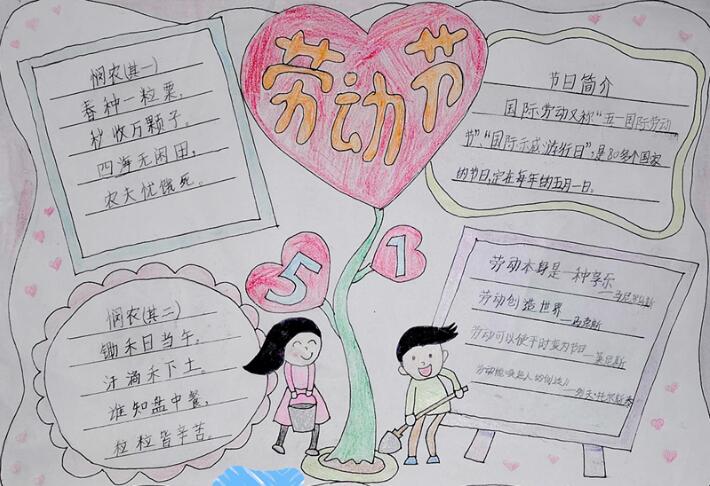 劳动节
5
1
悯农(其一)
春种一粒粟,
秒收万颗子。
四海无闲田,
农夫忧饿死。
节日简介
国际劳动又称“五一国际劳动
节”、“国际示威游行日”,是80多个国家
的节日,定在每年的五月一日。
悯农(其二)
锄禾日当午,
汗滴禾下土。
谁知盘中餐,
粒粒皆辛苦。
劳动本身是一种享乐
劳动创造世界——马克思
劳动可以使 变为节日
劳动能唤起人的创造力——列夫·托尔斯泰